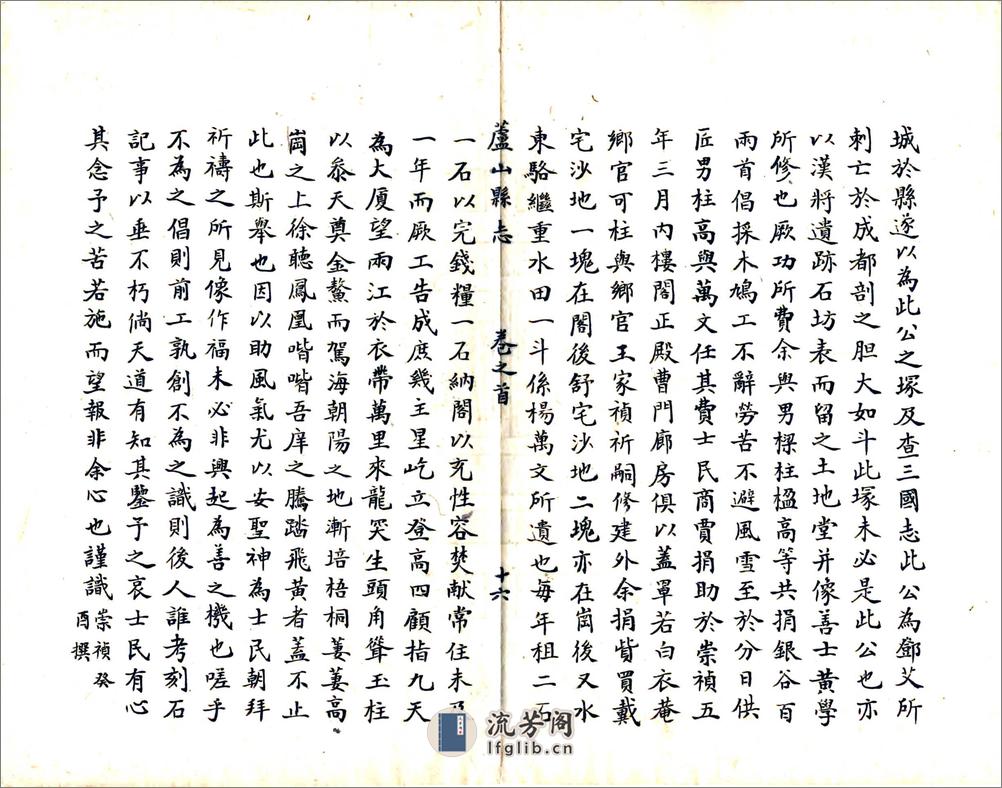 城於縣遂以為此公之塚及查三國志此公為鄧艾所
刺亡於成都剖之胆大如斗此塚未必是此公也亦
以漢將遺跡石坊表而留之土地堂并像善士黃學
所修也厥功所費余與男樑柱楹高等共捐銀谷百
兩首倡採木鳩工不辭勞苦不避風雪至於分日供
匠男柱高與萬文任其費士民商賈捐助於崇禎五
年三月內樓閣正殿曹門廊房俱以蓋罩若白衣菴
鄉官可柱與鄉官王家禎祈嗣修建外余捐貲買戴
宅沙地一塊在閣後舒宅沙地二塊亦在崗後又水
東駱繼重水田一斗係楊萬文所遺也每年租二石
蘆山縣志 卷之首 十六
一石以完錢糧一石納閣以充性容焚献常住未及
一年而厥工告成庶幾主星屹立登高四顧指九天
為大廈望兩江於衣帶萬里來龍突生頭角聳玉柱
以叅天奠金鰲而駕海朝陽之地漸培梧桐萋萋高
崗之上徐聽鳳凰喈喈吾庠之騰踏飛黃者蓋不止
此也斯舉也因以助風氣尤以安聖神為士民朝拜
祈禱之所見像作福未必非興起為善之機也嗟乎
不為之倡則前工孰創不為之識則後人誰考刻石
記事以垂不朽倘天道有知其鑒予之哀士民有心
其念予之苦若施而望報非余心也謹識 崇禎癸
酉撰
流芳阁
lfglib.cn